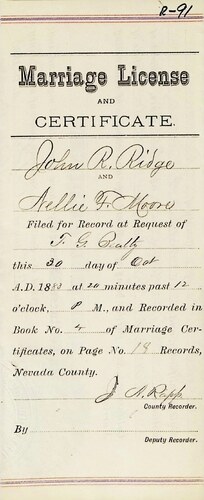 R-91
Marriage License
AND
CERTIFICATE.
John R. Ridge
AND
Nellie F. Moore
Filed for Record at Request of
F. G. Beatty
this 30 day of Oct
A.D. 1883 at 20 minutes past 12
o'clock, P M., and Recorded in
Book No. 4 of Marriage Cer-
tificates, on Page No. 18 Records,
Nevada County.
J A. Rapp
County Recorder.
By
Deputy Recorder.